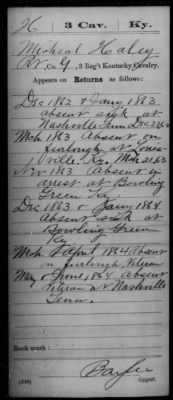 H | 3 Cav. | Ky.
Micheal Haley
Pvt., Co. G, 3 Reg't Kentucky Cavalry.
Appears on Returns as follows:
Dec 1862 & Jany 1863
absent sick at
Nashville Tenn Dec 27/62
Mch 1863 Absent on
furlough at Louis-
ville, Ky. Mch 21/63
Nov 1863 Absent in
arrest at Bowling
Green Ky
Dec 1863 & Jany 1864
Absent sick at
Bowling Green
Ky
Mch & April 1864 Absent
on furlough Veteran
May & June, 1864 Absent
Veteran at Nashville
Tenn.
Book mark:
Copyist.